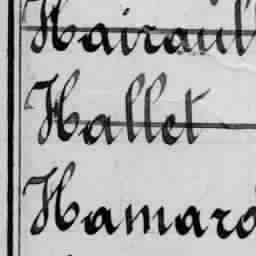 Hairault
Hallet
Hamard